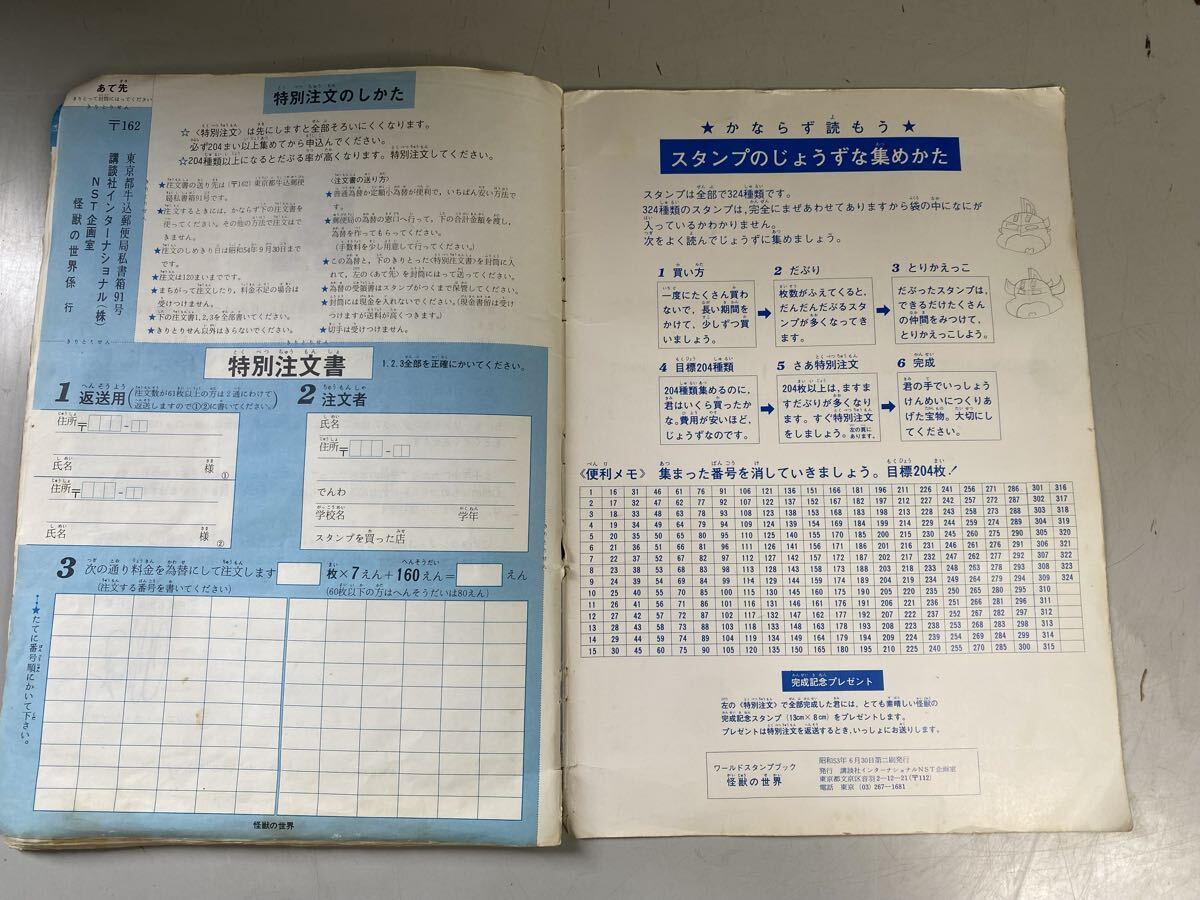 あて先
きりとって封筒にはってください
きりとりせん
〒162
東京都牛込郵便局私書箱91号
講談社インターナショナル(株)
NST企画室
怪獣の世界係 行
特別注文のしかた
☆〈特別注文〉は先にしますと全部そろいにくくなります。
必ず204まい以上集めてから申込んでください。
☆204種類以上になるとだぶる率が高くなります。特別注文してください。
★注文書の送り先は(〒162)東京都牛込郵便
局私書箱91号です。
★注文するときには、かならず下の注文書を
使ってください。その他の方法で注文はで
きません。
★注文のしめきり日は昭和54年9月30日まで
です。
★注文は120まいまでです。
★まちがって注文したり、料金不足の場合は
受けつけません。
★下の注文書1,2,3を全部書いてください。
★きりとりせん以外はきらないでください。
〈注文書の送り方〉
★普通為替か定額小為替が便利で、いちばん安い方法で
す。
★郵便局の為替の窓口へ行って、下の合計金額を渡し、
為替を作ってもらってください。
(手数料を少し用意して行ってください。)
★この為替と、下のきりとった〈特別注文書〉を封筒に入
れて、左の〈あて先〉を封筒にはって送ってください。
★為替の受領書はスタンプがつくまで保管してください。
★封筒には現金を入れないでください。(現金書留は受け
つけますが送料が高くつきます。)
★切手は受けつけません。
きりとりせん
きりとりせん
特別注文書
1.2.3全部を正確にかいてください。
1 返送用(注文数が61枚以上の方は2通にわけて
返送しますので①②に書いてください。)
住所〒 -
氏名 様 ①
住所〒 -
氏名 様 ②
2 注文者
氏名
住所〒 -
でんわ
学校名 学年
スタンプを買った店
3 次の通り料金を為替にして注文します 枚×7えん+160えん= えん
(注文する番号を書いてください) (60枚以下の方はへんそうだいは80えん)
★たてに番号順にかいて下さい。
怪獣の世界
★かならず読もう★
スタンプのじょうずな集めかた
スタンプは全部で324種類です。
324種類のスタンプは、完全にまぜあわせてありますから袋の中になにが
入っているかわかりません。
次をよく読んでじょうずに集めましょう。
1 買い方
一度にたくさん買わ
ないで、長い期間を
かけて、少しずつ買
いましょう。
2 だぶり
枚数がふえてくると、
だんだんだぶるスタ
ンプが多くなってきま
す。
3 とりかえっこ
だぶったスタンプは、
できるだけたくさん
の仲間をみつけて、
とりかえっこしよう。
4 目標204種類
204種類集めるのに、
君はいくら買ったか
な。費用が安いほど、
じょうずなのです。
5 さあ特別注文
204枚以上は、ますま
すだぶりが多くなり
ます。すぐ特別注文
をしましょう。左の頁に
あります。
6 完成
君の手でいっしょう
けんめいにつくりあ
げた宝物。大切にし
てください。
《便利メモ》 集まった番号を消していきましょう。目標204枚!
1 16 31 46 61 76 91 106 121 136 151 166 181 196 211 226 241 256 271 286 301 316
2 17 32 47 62 77 92 107 122 137 152 167 182 197 212 227 242 257 272 287 302 317
3 18 33 48 63 78 93 108 123 138 153 168 183 198 213 228 243 258 273 288 303 318
4 19 34 49 64 79 94 109 124 139 154 169 184 199 214 229 244 259 274 289 304 319
5 20 35 50 65 80 95 110 125 140 155 170 185 200 215 230 245 260 275 290 305 320
6 21 36 51 66 81 96 111 126 141 156 171 186 201 216 231 246 261 276 291 306 321
7 22 37 52 67 82 97 112 127 142 157 172 187 202 217 232 247 262 277 292 307 322
8 23 38 53 68 83 98 113 128 143 158 173 188 203 218 233 248 263 278 293 308 323
9 24 39 54 69 84 99 114 129 144 159 174 189 204 219 234 249 264 279 294 309 324
10 25 40 55 70 85 100 115 130 145 160 175 190 205 220 235 250 265 280 295 310
11 26 41 56 71 86 101 116 131 146 161 176 191 206 221 236 251 266 281 296 311
12 27 42 57 72 87 102 117 132 147 162 177 192 207 222 237 252 267 282 297 312
13 28 43 58 73 88 103 118 133 148 163 178 193 208 223 238 253 268 283 298 313
14 29 44 59 74 89 104 119 134 149 164 179 194 209 224 239 254 269 284 299 314
15 30 45 60 75 90 105 120 135 150 165 180 195 210 225 240 255 270 285 300 315
完成記念プレゼント
左の〈特別注文〉で全部完成した君には、とても素晴しい怪獣の
完成記念スタンプ(13cm×8cm)をプレゼントします。
プレゼントは特別注文を返送するとき、いっしょにお送りします。
ワールドスタンプブック
怪獣の世界
昭和53年6月30日第二刷発行
発行 講談社インターナショナルNST企画室
東京都文京区音羽2-12-21(〒112)
電話 東京(03)267-1681